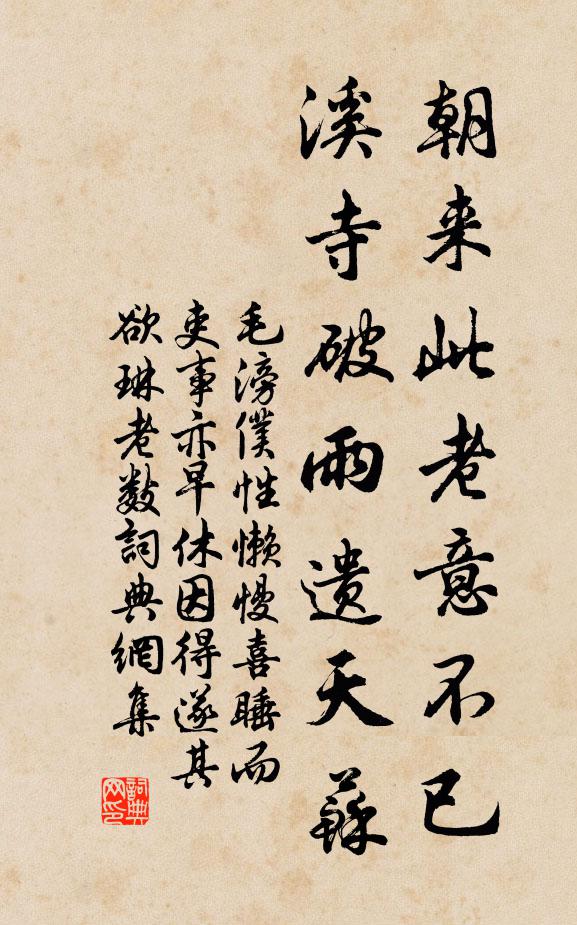 朝来此老意不已
溪寺破雨遗天蘇
毛滂僕性懒慢喜睡而
吏事亦早休因得遂其
欲琳老数詞典網集
詞典
网印